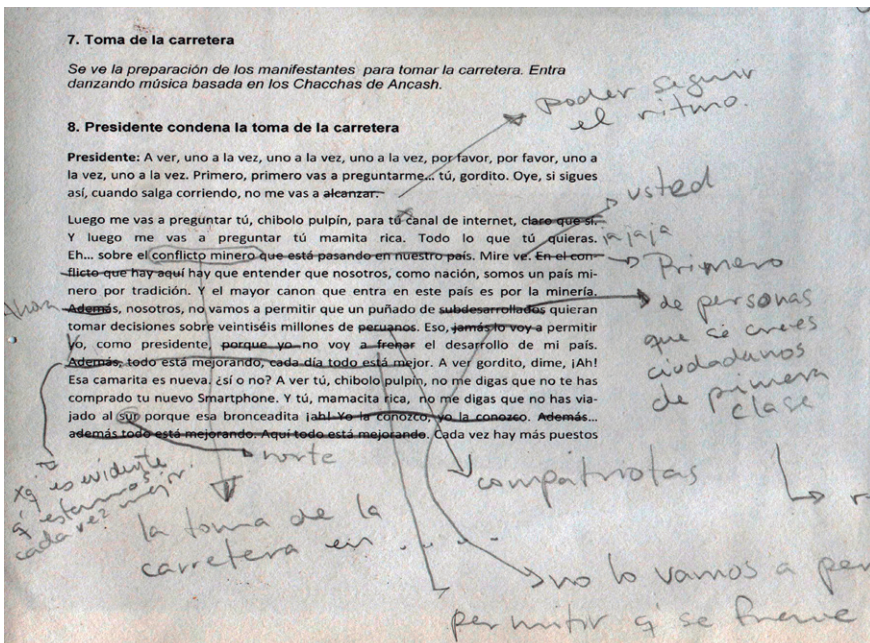 7. Toma de la carretera
Se ve la preparación de los manifestantes para tomar la carretera. Entra
danzando música basada en los Chacchas de Ancash.
poder seguir
el ritmo.
8. Presidente condena la toma de la carretera
Presidente: A ver, uno a la vez, uno a la vez, uno a la vez, por favor, por favor, uno a
la vez, uno a la vez. Primero, primero vas a preguntarme... tú, gordito. Oye, si sigues
así, cuando salga corriendo, no me vas a alcanzar.
usted
Luego me vas a preguntar tú, chibolo pulpín, para tú canal de internet, claro que sí.
Y luego me vas a preguntar tú mamita rica. Todo lo que tú quieras.
jajaja
Eh... sobre el conflicto minero que está pasando en nuestro país. Mire ve. En el con-
flicto que hay aquí hay que entender que nosotros, como nación, somos un país mi-
nero por tradición. Y el mayor canon que entra en este país es por la minería.
Además, nosotros, no vamos a permitir que un puñado de subdesarrollados quieran
tomar decisiones sobre veintiséis millones de peruanos. Eso, jamás lo voy a permitir
yo, como presidente, porque yo no voy a frenar el desarrollo de mi país.
Además, todo está mejorando, cada día todo está mejor. A ver gordito, dime, ¡Ah!
Esa camarita es nueva. ¿sí o no? A ver tú, chibolo pulpín, no me digas que no te has
comprado tu nuevo Smartphone. Y tú, mamacita rica, no me digas que no has via-
jado al sur porque esa bronceadita ¡ah! Yo la conozco, yo la conozco. Además...
además todo está mejorando. Aquí todo está mejorando. Cada vez hay más puestos
Primero
de personas
que se creen
ciudadanos
de primera
clase
Ahora
norte
xq es evidente
q estamos
cada vez mejor.
la toma de la
carretera en . . . .
compatriotas
no lo vamos a
permitir q se frene